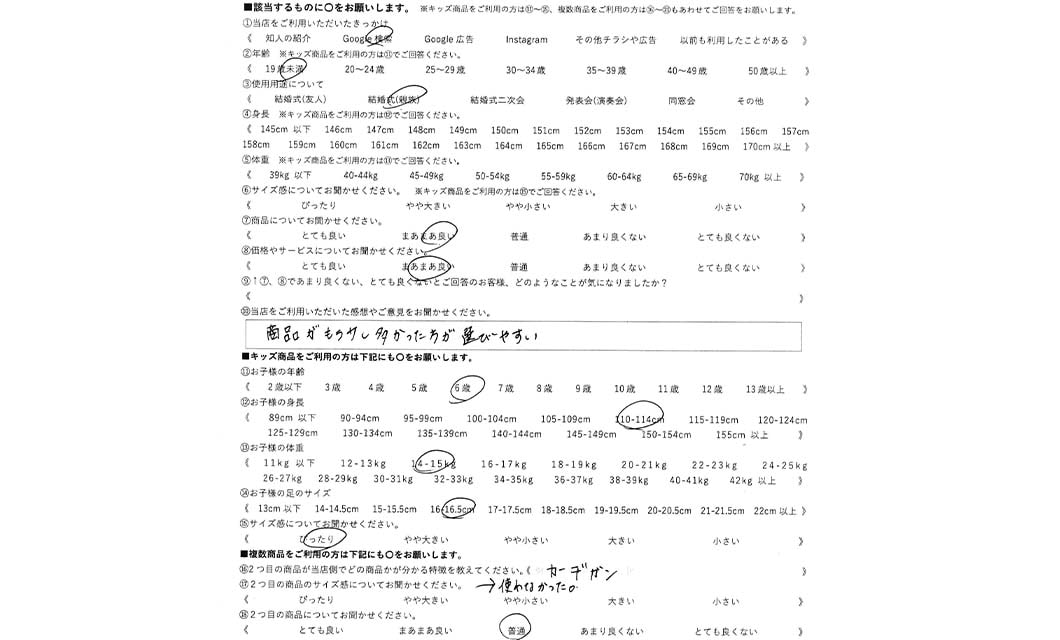 ■該当するものに〇をお願いします。 ※キッズ商品をご利用の方は⑪〜⑮、複数商品をご利用の方は⑯〜⑳もあわせてご回答をお願いします。
①当店をご利用いただいたきっかけ
《 知人の紹介 Google 検索 Google 広告 Instagram その他チラシや広告 以前も利用したことがある 》
②年齢 ※キッズ商品をご利用の方は⑪でご回答ください。
《 19歳未満 20〜24歳 25〜29歳 30〜34歳 35〜39歳 40〜49歳 50歳以上 》
③使用用途について
《 結婚式(友人) 結婚式(親族) 結婚式二次会 発表会(演奏会) 同窓会 その他 》
④身長 ※キッズ商品をご利用の方は⑫でご回答ください。
《 145cm 以下 146cm 147cm 148cm 149cm 150cm 151cm 152cm 153cm 154cm 155cm 156cm 157cm
158cm 159cm 160cm 161cm 162cm 163cm 164cm 165cm 166cm 167cm 168cm 169cm 170cm 以上 》
⑤体重 ※キッズ商品をご利用の方は⑬でご回答ください。
《 39kg 以下 40-44kg 45-49kg 50-54kg 55-59kg 60-64kg 65-69kg 70kg 以上 》
⑥サイズ感についてお聞かせください。 ※キッズ商品をご利用の方は⑮でご回答ください。
《 ぴったり やや大きい やや小さい 大きい 小さい 》
⑦商品についてお聞かせください。
《 とても良い まあまあ良い 普通 あまり良くない とても良くない 》
⑧価格やサービスについてお聞かせください。
《 とても良い まあまあ良い 普通 あまり良くない とても良くない 》
⑨↑⑦、⑧であまり良くない、とても良くないとご回答のお客様、どのようなことが気になりましたか？
《 》
⑩当店をご利用いただいた感想やご意見をお聞かせください。
商品がもう少し多かったらが選びやすい
■キッズ商品をご利用の方は下記にも〇をお願いします。
⑪お子様の年齢
《 2歳以下 3歳 4歳 5歳 6歳 7歳 8歳 9歳 10歳 11歳 12歳 13歳以上 》
⑫お子様の身長
《 89cm 以下 90-94cm 95-99cm 100-104cm 105-109cm 110-114cm 115-119cm 120-124cm
125-129cm 130-134cm 135-139cm 140-144cm 145-149cm 150-154cm 155cm 以上 》
⑬お子様の体重
《 11kg 以下 12-13kg 14-15kg 16-17kg 18-19kg 20-21kg 22-23kg 24-25kg
26-27kg 28-29kg 30-31kg 32-33kg 34-35kg 36-37kg 38-39kg 40-41kg 42kg 以上 》
⑭お子様の足のサイズ
《 13cm 以下 14-14.5cm 15-15.5cm 16-16.5cm 17-17.5cm 18-18.5cm 19-19.5cm 20-20.5cm 21-21.5cm 22cm 以上 》
⑮サイズ感についてお聞かせください。
《 ぴったり やや大きい やや小さい 大きい 小さい 》
■複数商品をご利用の方は下記にも〇をお願いします。
⑯2つ目の商品が当店側でどの商品かが分かる特徴を教えてください。《 カーデガン 》
⑰2つ目の商品のサイズ感についてお聞かせください。 →使わなかった。
《 ぴったり やや大きい やや小さい 大きい 小さい 》
⑱2つ目の商品についてお聞かせください。
《 とても良い まあまあ良い 普通 あまり良くない とても良くない 》